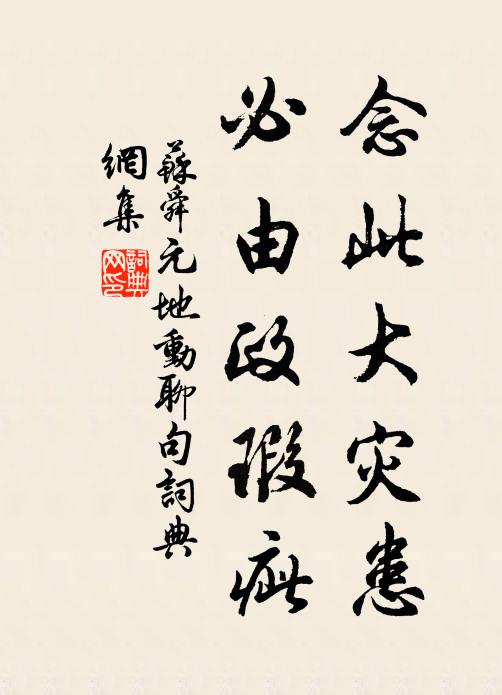 念此大灾患
必由政瑕疵
蘇舜元地動聊句詞典
網集
詞典
网印